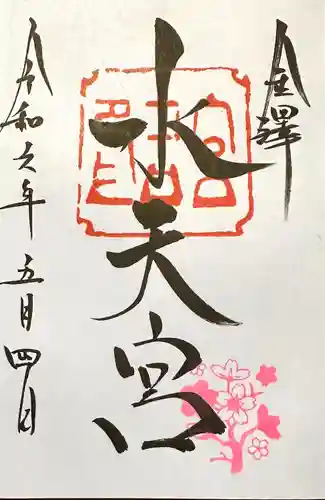 金澤
水天宮
令和六年五月四日